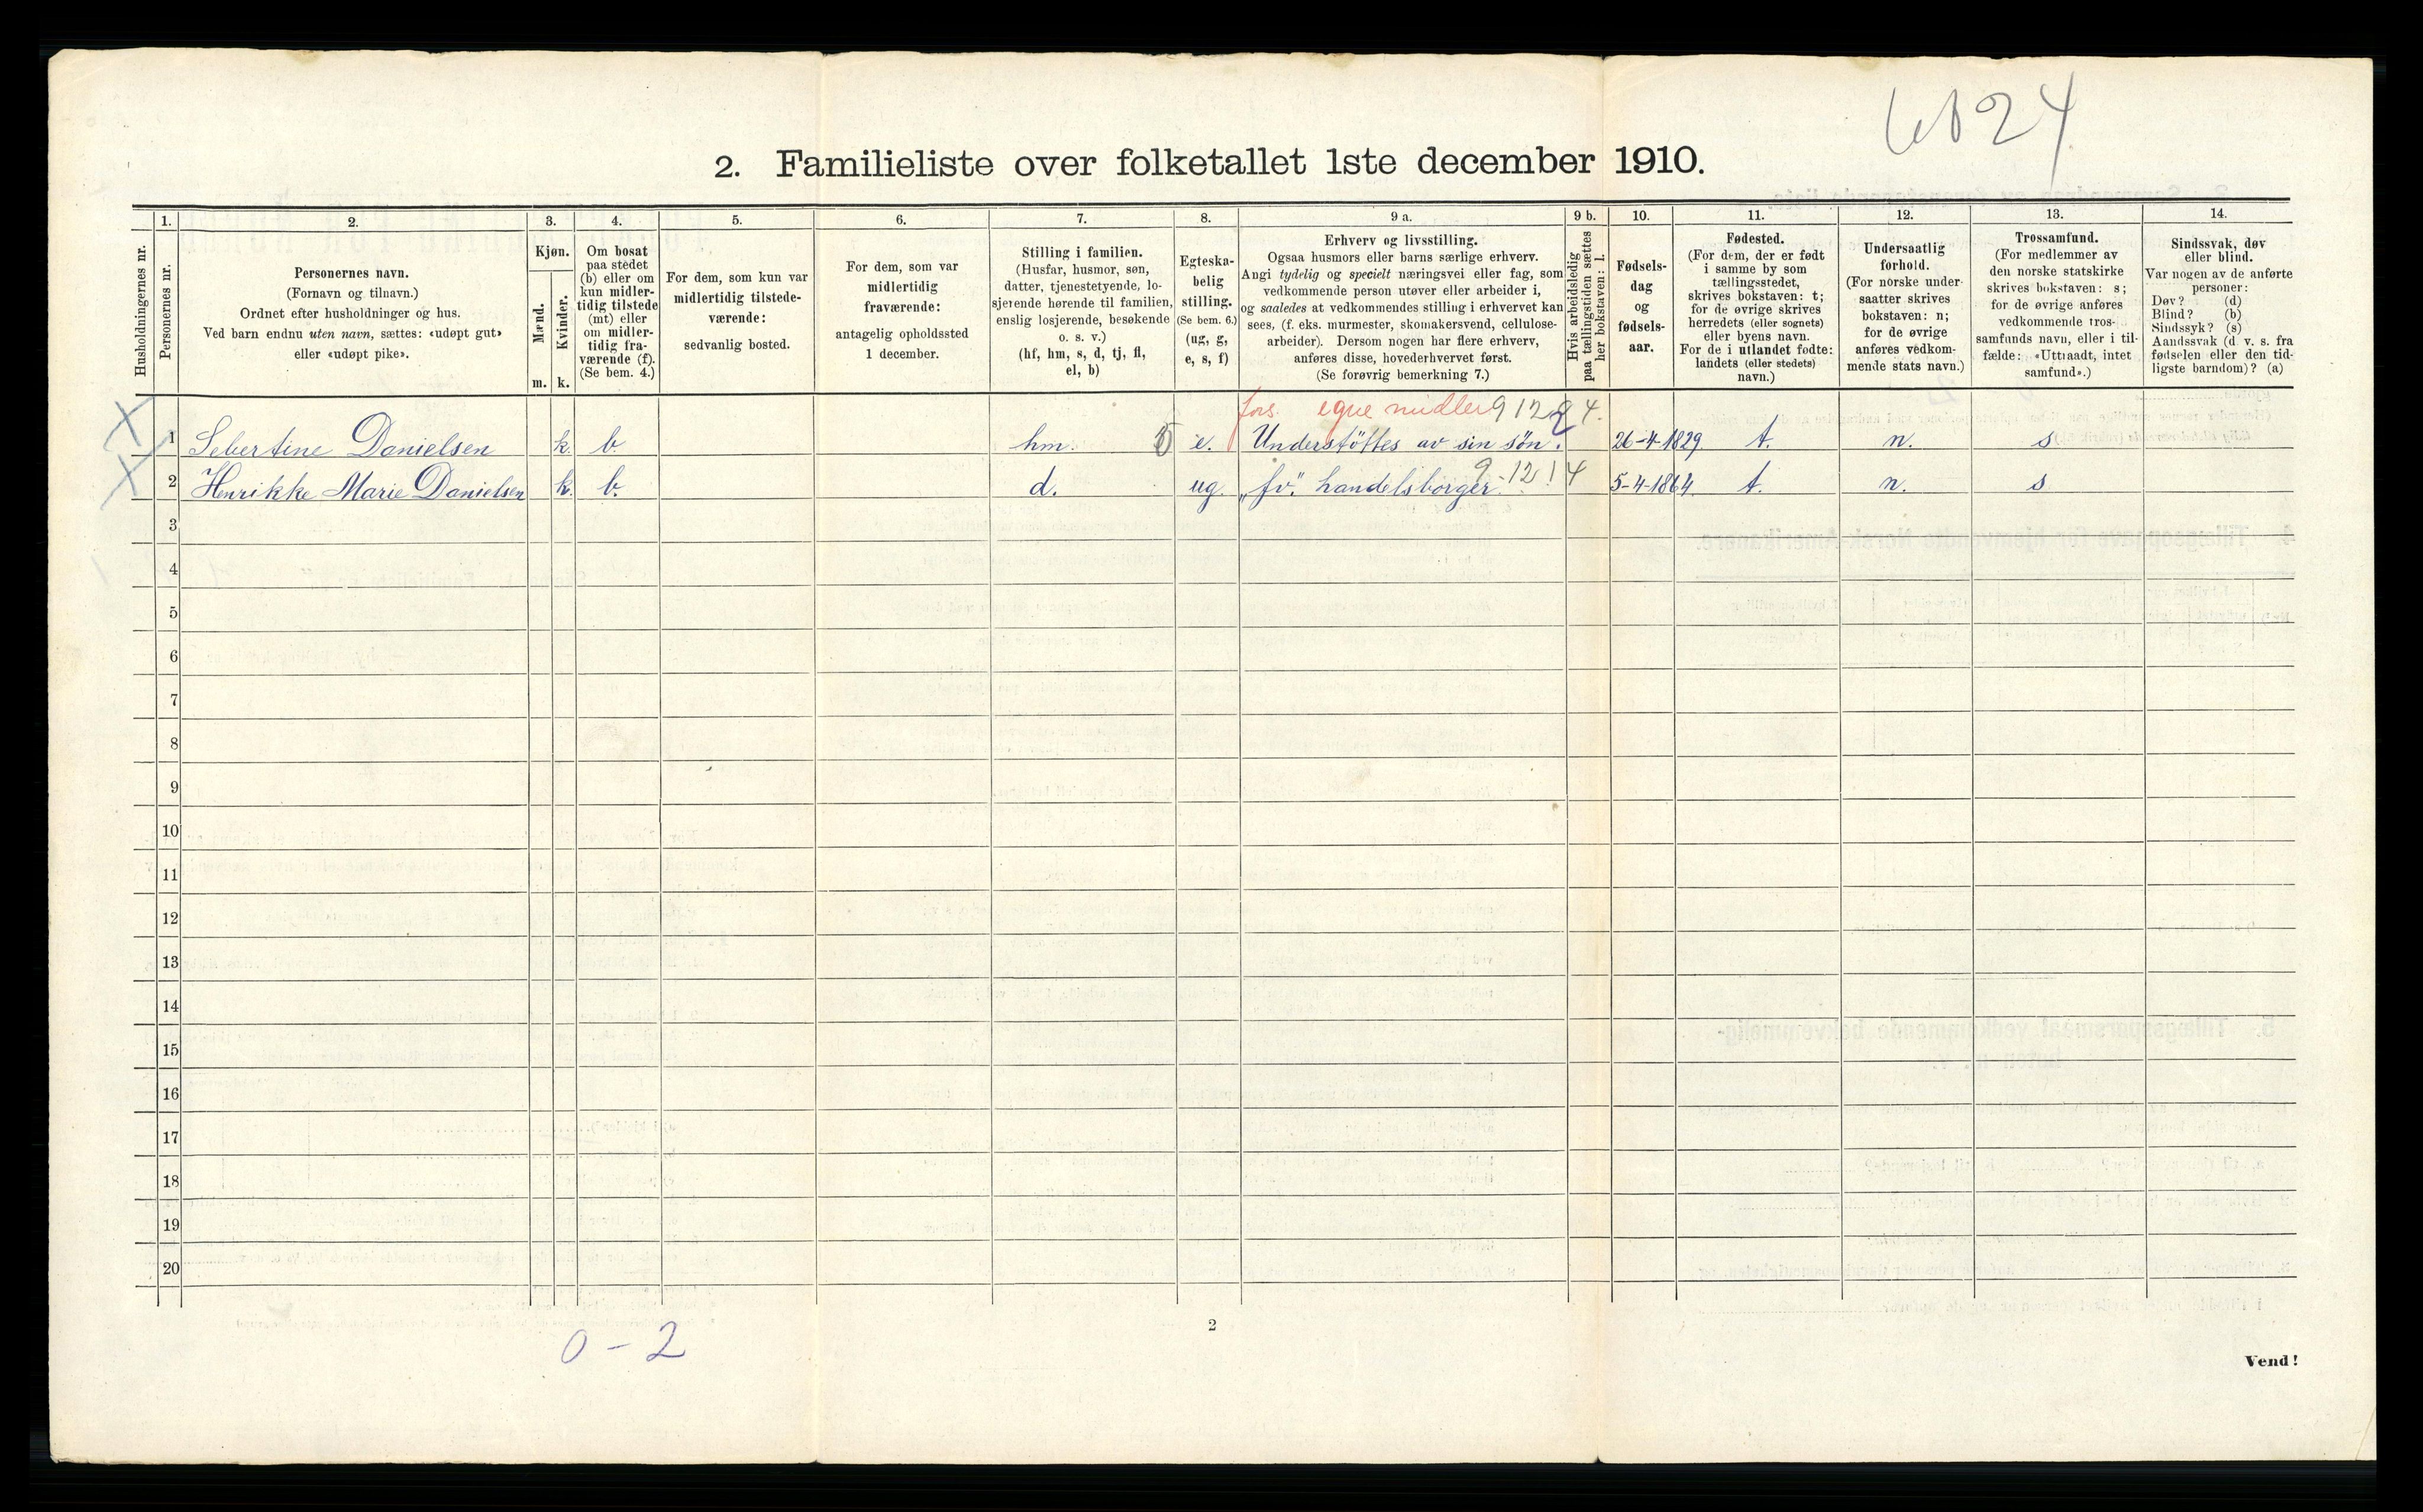 6824
2. Familieliste over folketallet 1ste december 1910.
Husholdningernes nr.
1.
Personernes nr.
2.
Personernes navn.
(Fornavn og tilnavn.)
Ordnet efter husholdninger og hus.
Ved barn endnu uten navn, sættes: «udøpt gut»
eller «udøpt pike».
3.
Kjøn.
Mænd.
Kvinder.
m. k.
4.
Om bosat
paa stedet
(b) eller om
kun midler-
tidig tilstede
(mt) eller
om midler-
tidig fra-
værende (f).
(Se bem. 4.)
5.
For dem, som kun var
midlertidig tilstede-
værende:
sedvanlig bosted.
6.
For dem, som var
midlertidig
fraværende:
antagelig opholdssted
1 december.
7.
Stilling i familien.
(Husfar, husmor, søn,
datter, tjenestetyende, lo-
sjerende hørende til familien,
enslig losjerende, besøkende
o. s. v.)
(hf, hm, s, d, tj, fl,
el, b)
8.
Egteska-
belig
stilling.
(Se bem. 6.)
(ug, g,
e, s, f)
9 a.
Erhverv og livsstilling.
Ogsaa husmors eller barns særlige erhverv.
Angi tydelig og specielt næringsvei eller fag, som
vedkommende person utøver eller arbeider i,
og saaledes at vedkommendes stilling i erhvervet kan
sees, (f. eks. murmester, skomakersvend, cellulose-
arbeider). Dersom nogen har flere erhverv,
anføres disse, hovederhvervet først.
(Se forøvrig bemerkning 7.)
9 b.
Hvis arbeidsledig
paa tællingstiden sættes
her bokstaven: l.
10.
Fødsels-
dag
og
fødsels-
aar.
11.
Fødested.
(For dem, der er født
i samme by som
tællingsstedet,
skrives bokstaven: t;
for de øvrige skrives
herredets (eller sognets)
eller byens navn.
For de i utlandet fødte:
landets (eller stedets)
navn.)
12.
Undersaatlig
forhold.
(For norske under-
saatter skrives
bokstaven: n;
for de øvrige
anføres vedkom-
mende stats navn.)
13.
Trossamfund.
(For medlemmer av
den norske statskirke
skrives bokstaven: s;
for de øvrige anføres
vedkommende tros-
samfunds navn, eller i til-
fælde: «Uttraadt, intet
samfund».)
14.
Sindssvak, døv
eller blind.
Var nogen av de anførte
personer:
Døv? (d)
Blind? (b)
Sindssyk? (s)
Aandssvak (d. v. s. fra
fødselen eller den tid-
ligste barndom)? (a)
fors. egne midler
1 Sebertine Danielsen k. b. hm. e. Understöttes av sin sön. 26-4-1829. t. n. s
2 Henrikke Marie Danielsen k. b. d. ug. „fv." handelsborger 9-12!4 5-4-1864. t. n. s
3
4
5
6
7
8
9
10
11
12
13
14
15
16
17
18
19
20
0 - 2
2
Vend!